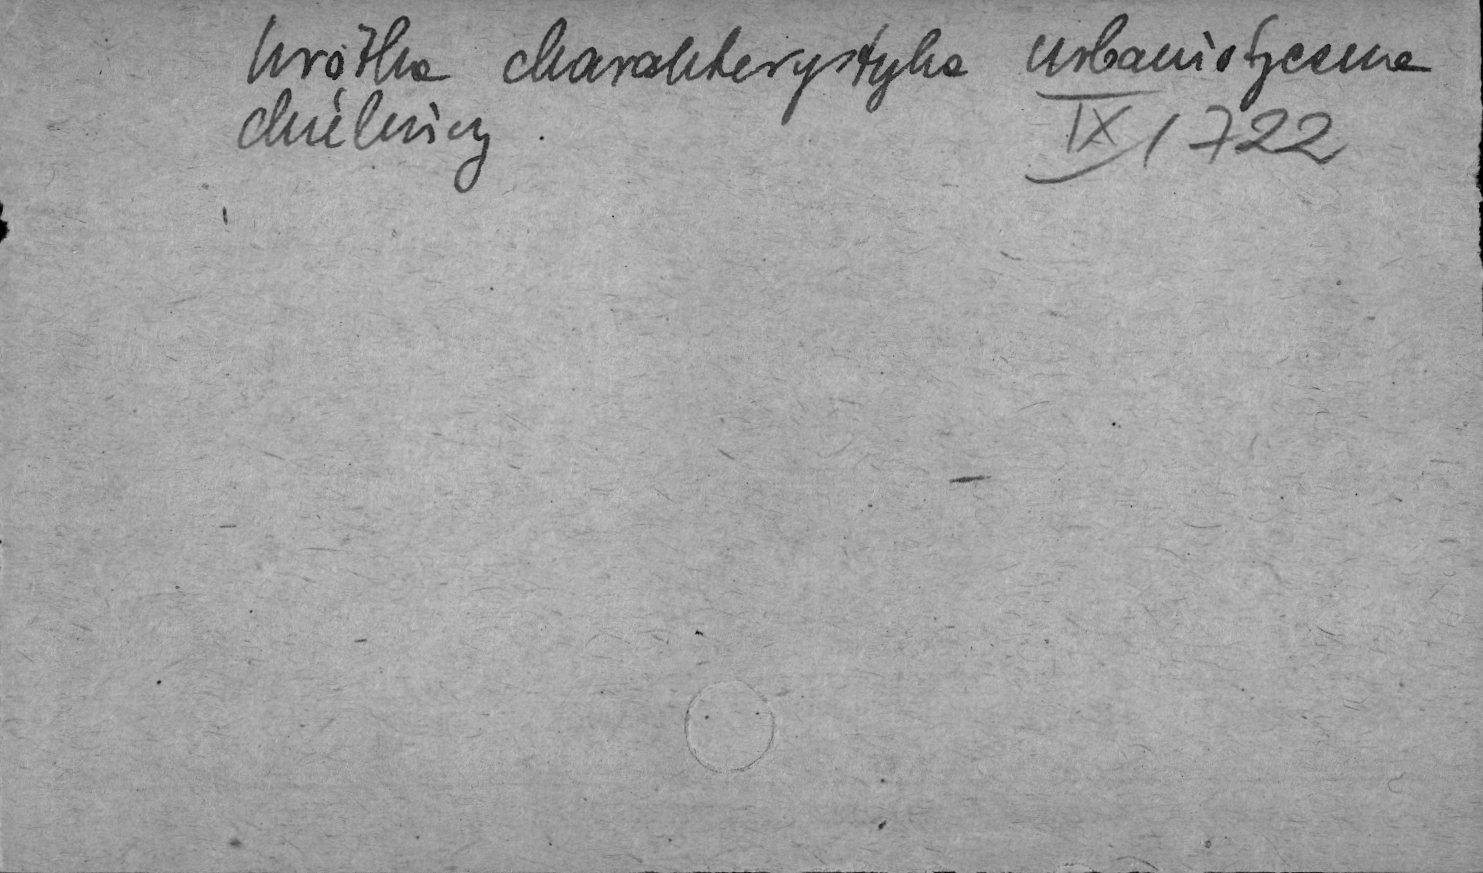 krótka charakterystyka urbanistyczna
dzielnicy.
IX/722